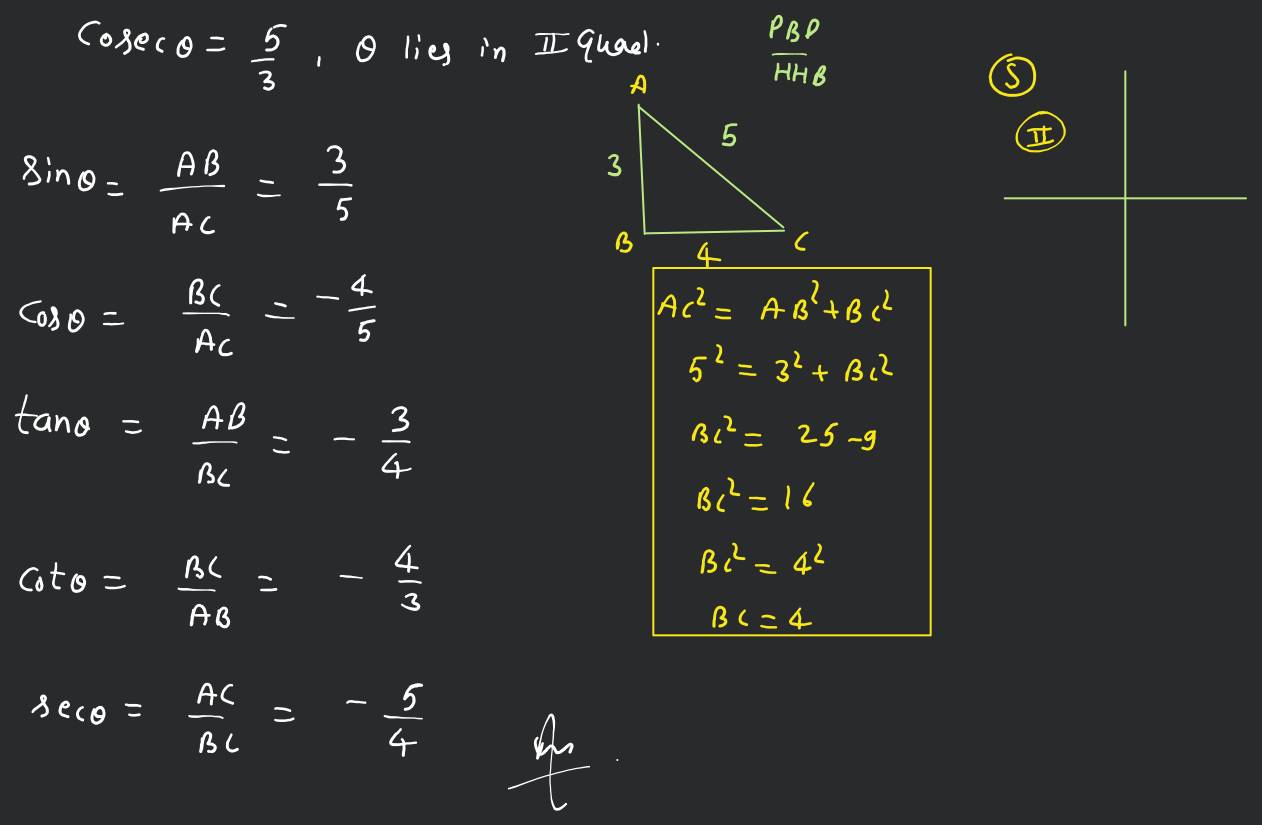 Cosecθ = 5/3, θ lies in II Quad.
PBP/HHB
sinθ = AB/AC = 3/5
cosθ = BC/AC = -4/5
tanθ = AB/BC = -3/4
cotθ = BC/AB = -4/3
secθ = AC/BC = -5/4
Ans
A
3
5
B
4
C
AC² = AB² + BC²
5² = 3² + BC²
BC² = 25 - 9
BC² = 16
BC² = 4²
BC = 4
S
II